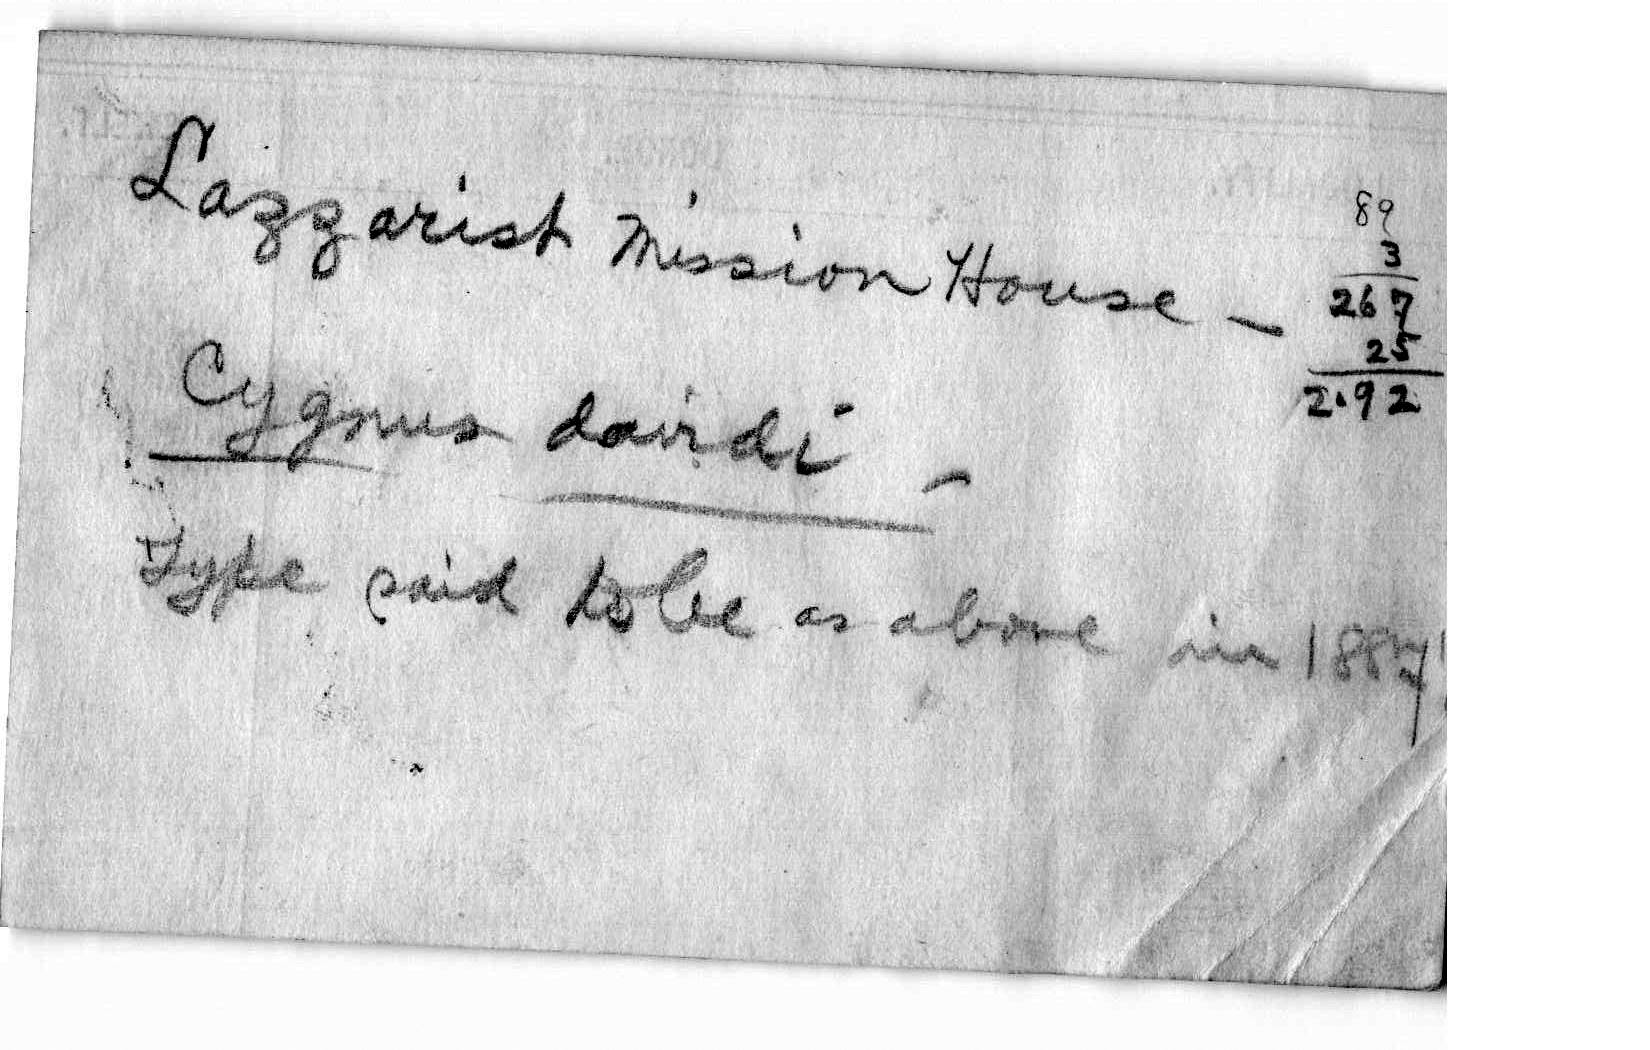 Lazzarist Mission House –
89
3
267
25
2.92
Cygnus davidi –
Type said to be as above in 1887